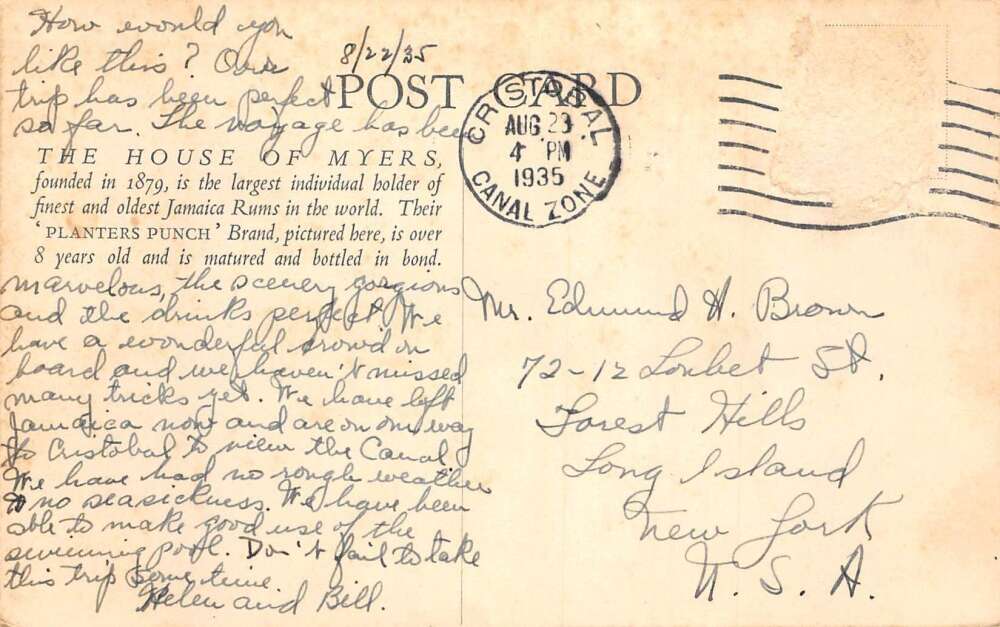 How would you
like this? Our
8/22/35
trip has been perfect
POST CARD
so far. The voyage has been
CRISTOBAL
AUG 23
4 PM
1935
CANAL ZONE
THE HOUSE OF MYERS,
founded in 1879, is the largest individual holder of
finest and oldest Jamaica Rums in the world. Their
'PLANTERS PUNCH' Brand, pictured here, is over
8 years old and is matured and bottled in bond.
marvelous, the scenery gorgious
and the drinks perfect. We
have a wonderful crowd on
board and we haven't missed
many tricks yet. We have left
Jamaica now and are on our way
to Cristobal to view the Canal.
We have had no rough weather
& no seasickness. We have been
able to make good use of the
swimming pool. Don't fail to take
this trip some time.
Helen and Bill.
Mr. Edmund H. Brown
72-12 Loubet St.
Forest Hills
Long Island
New York
U. S. A.